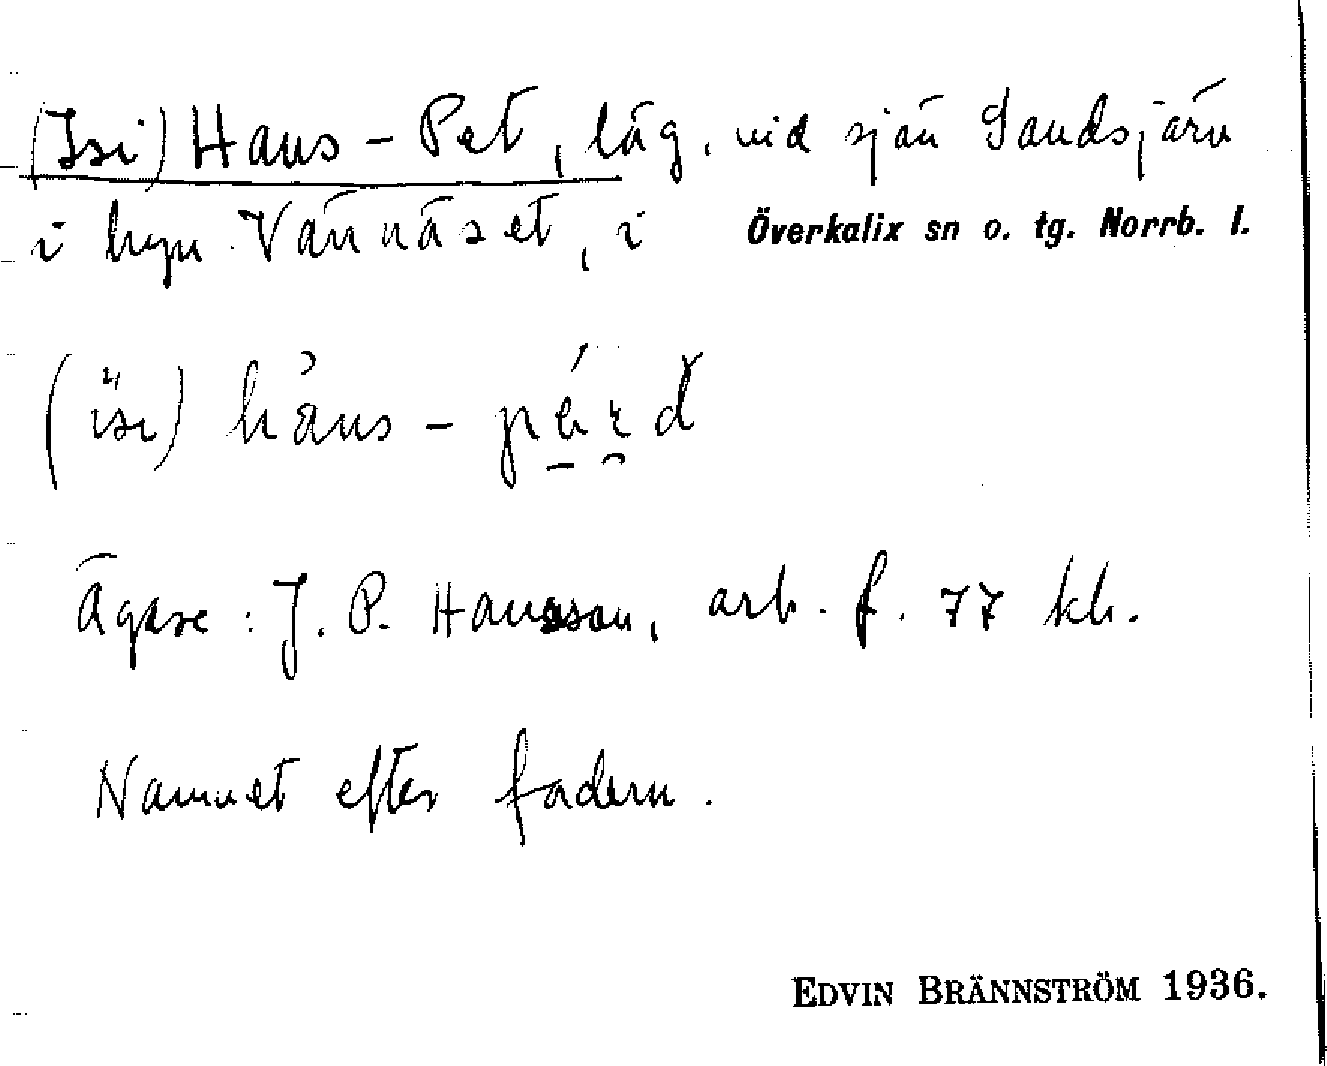 (Isi) Hans-Pet, läg. vid sjön Sandsjärv
i byn Vännäset, i Överkalix sn o. tg. Norrb. l.
(isi) håns-
Ägare: J. P. Hansson, arb. f. 77 kh.
Namnet efter fadern.
EDVIN BRÄNNSTRÖM 1936.